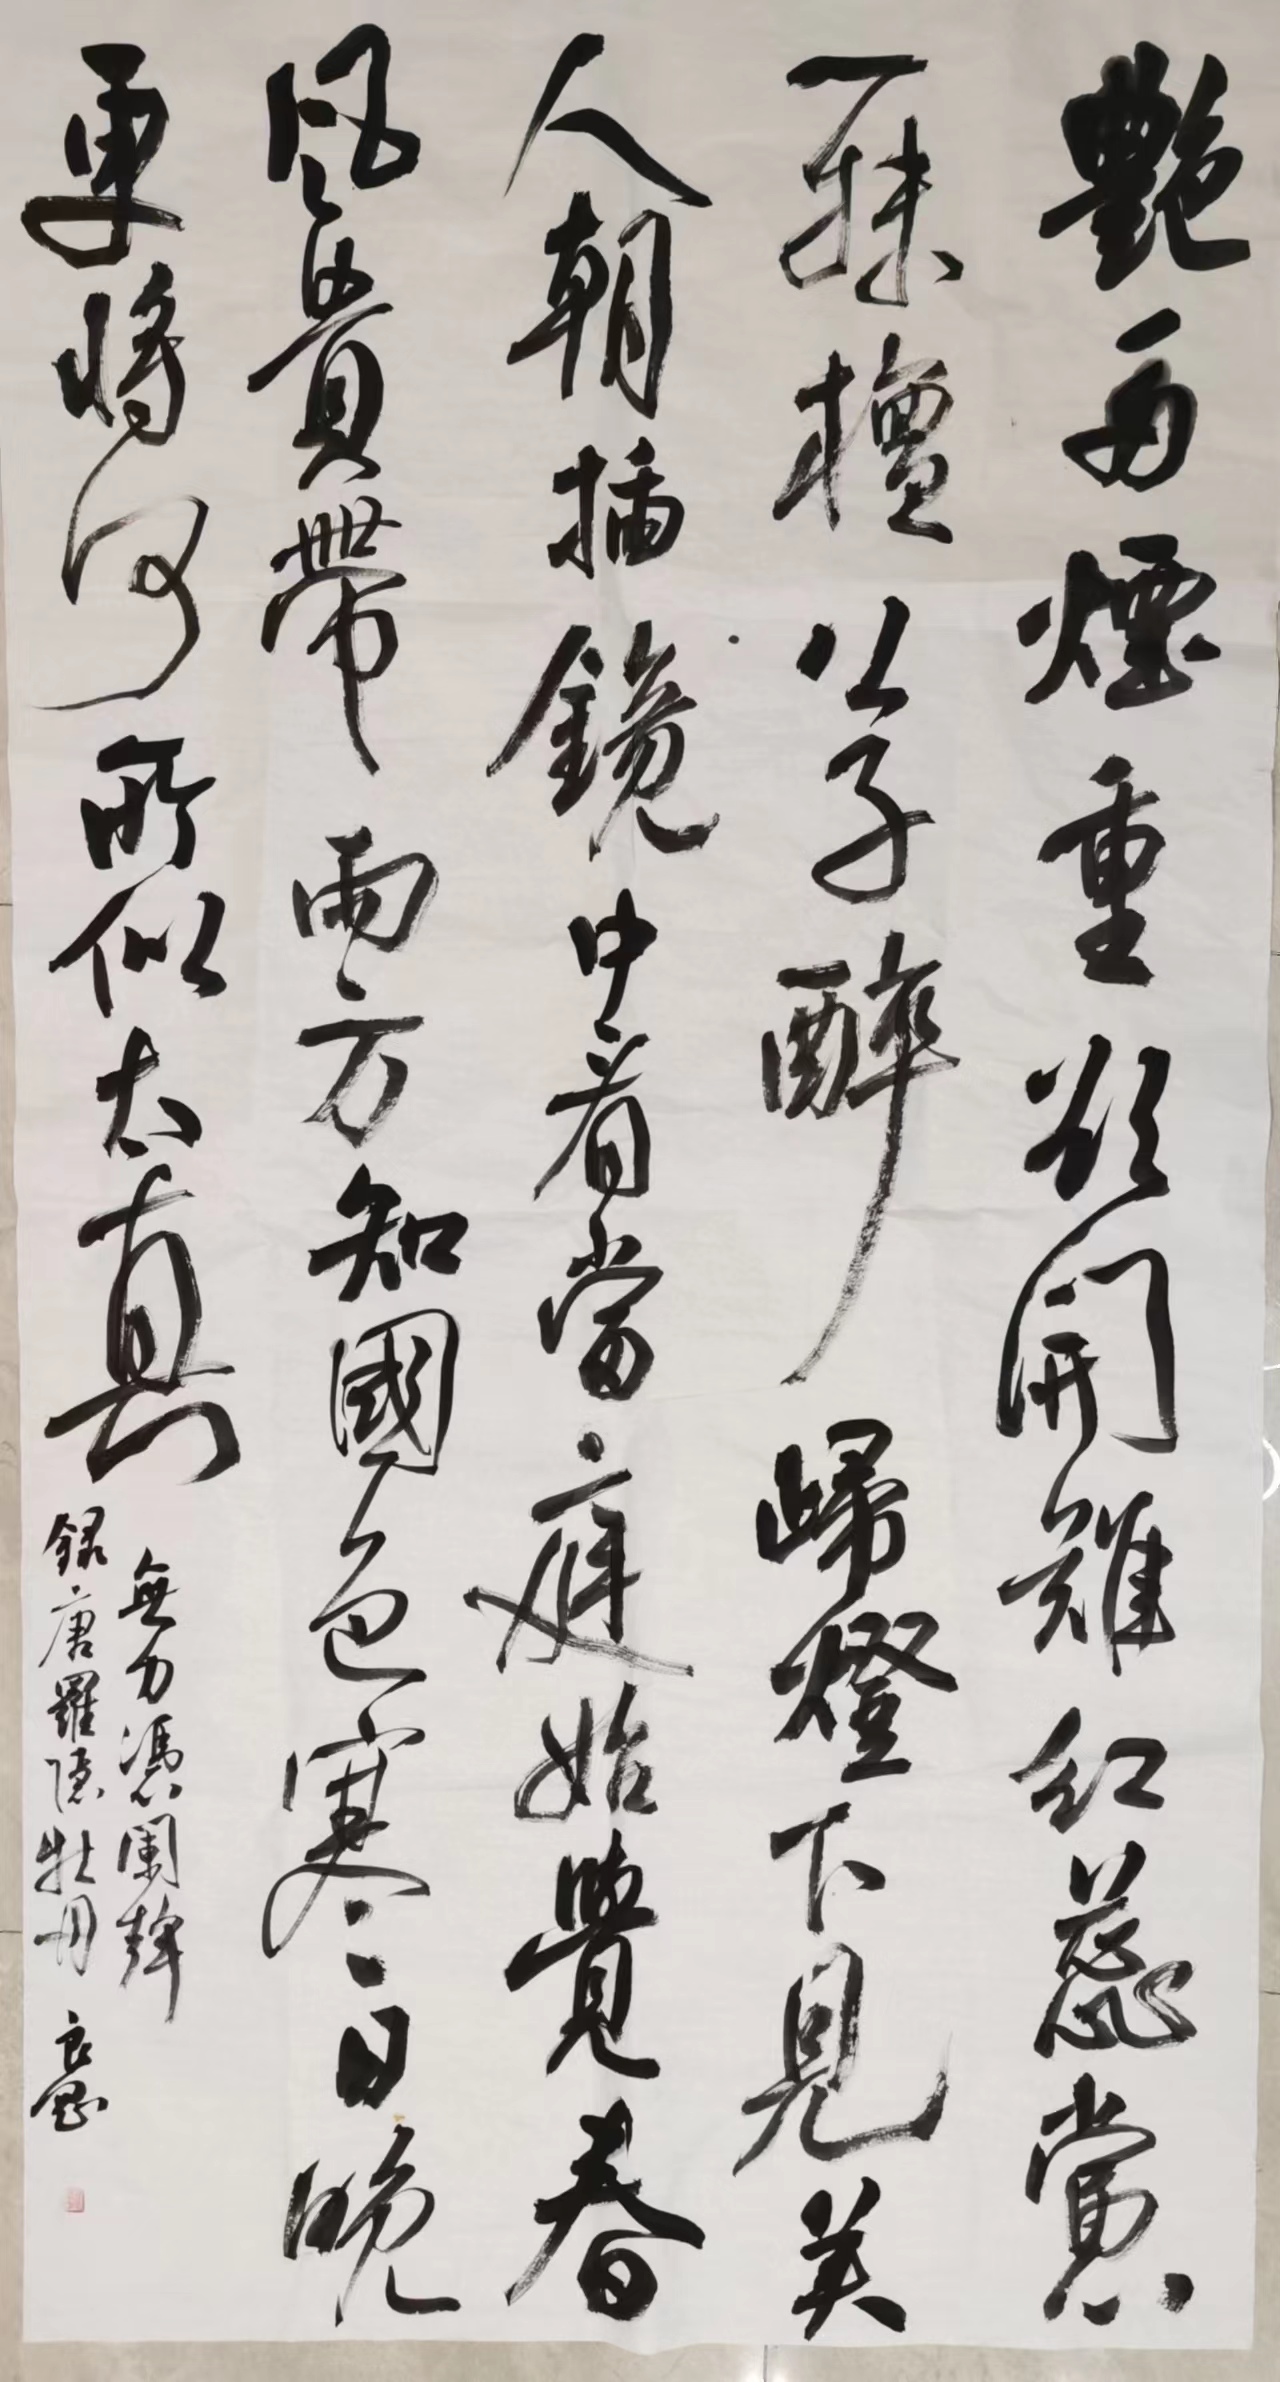 艷多煙重欲開難紅蕊當心
一抹檀公子醉歸燈下見美
人朝插鏡中看當庭始覺春
風貴帶雨方知國色寒日晚
更將何所似太真
無力憑闌幹
錄唐羅隱牡丹 良